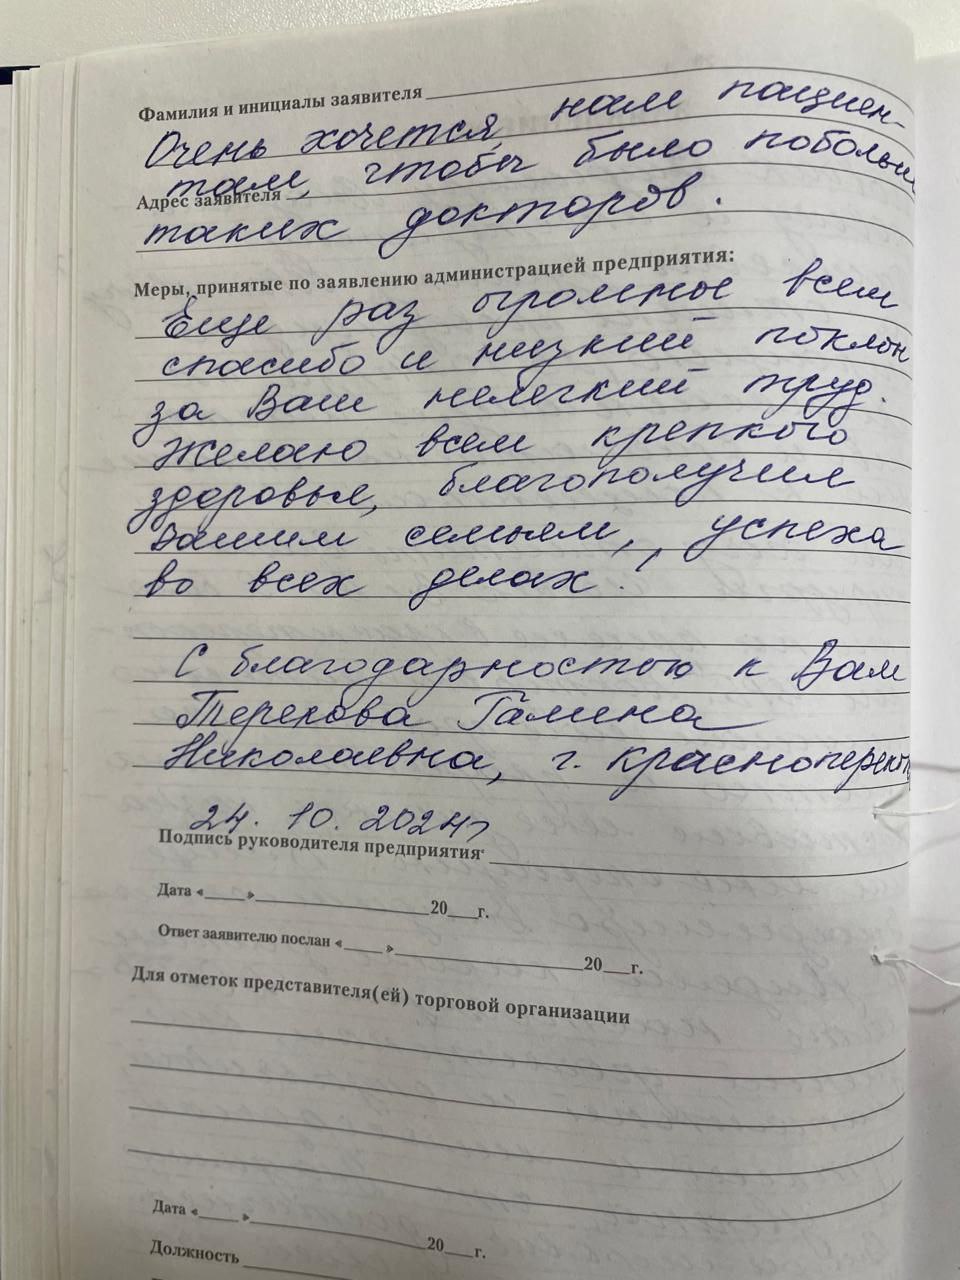 Фамилия и инициалы заявителя
Очень хочется нам пациен-
там, чтобы было побольше
Адрес заявителя
таких докторов.
Меры, принятые по заявлению администрацией предприятия:
Еще раз огромное всем
спасибо и низкий поклон
за Ваш нелегкий труд.
Желаю всем крепкого
здоровья, благополучия
Вашим семьям, успеха
во всех делах!
С благодарностью к Вам
Терехова Галина
Николаевна, г. Красноперекоп
24. 10. 2024г
Подпись руководителя предприятия
Дата «____»____________20___г.
Ответ заявителю послан «____»____________20___г.
Для отметок представителя(ей) торговой организации
Дата «____»____________20___г.
Должность